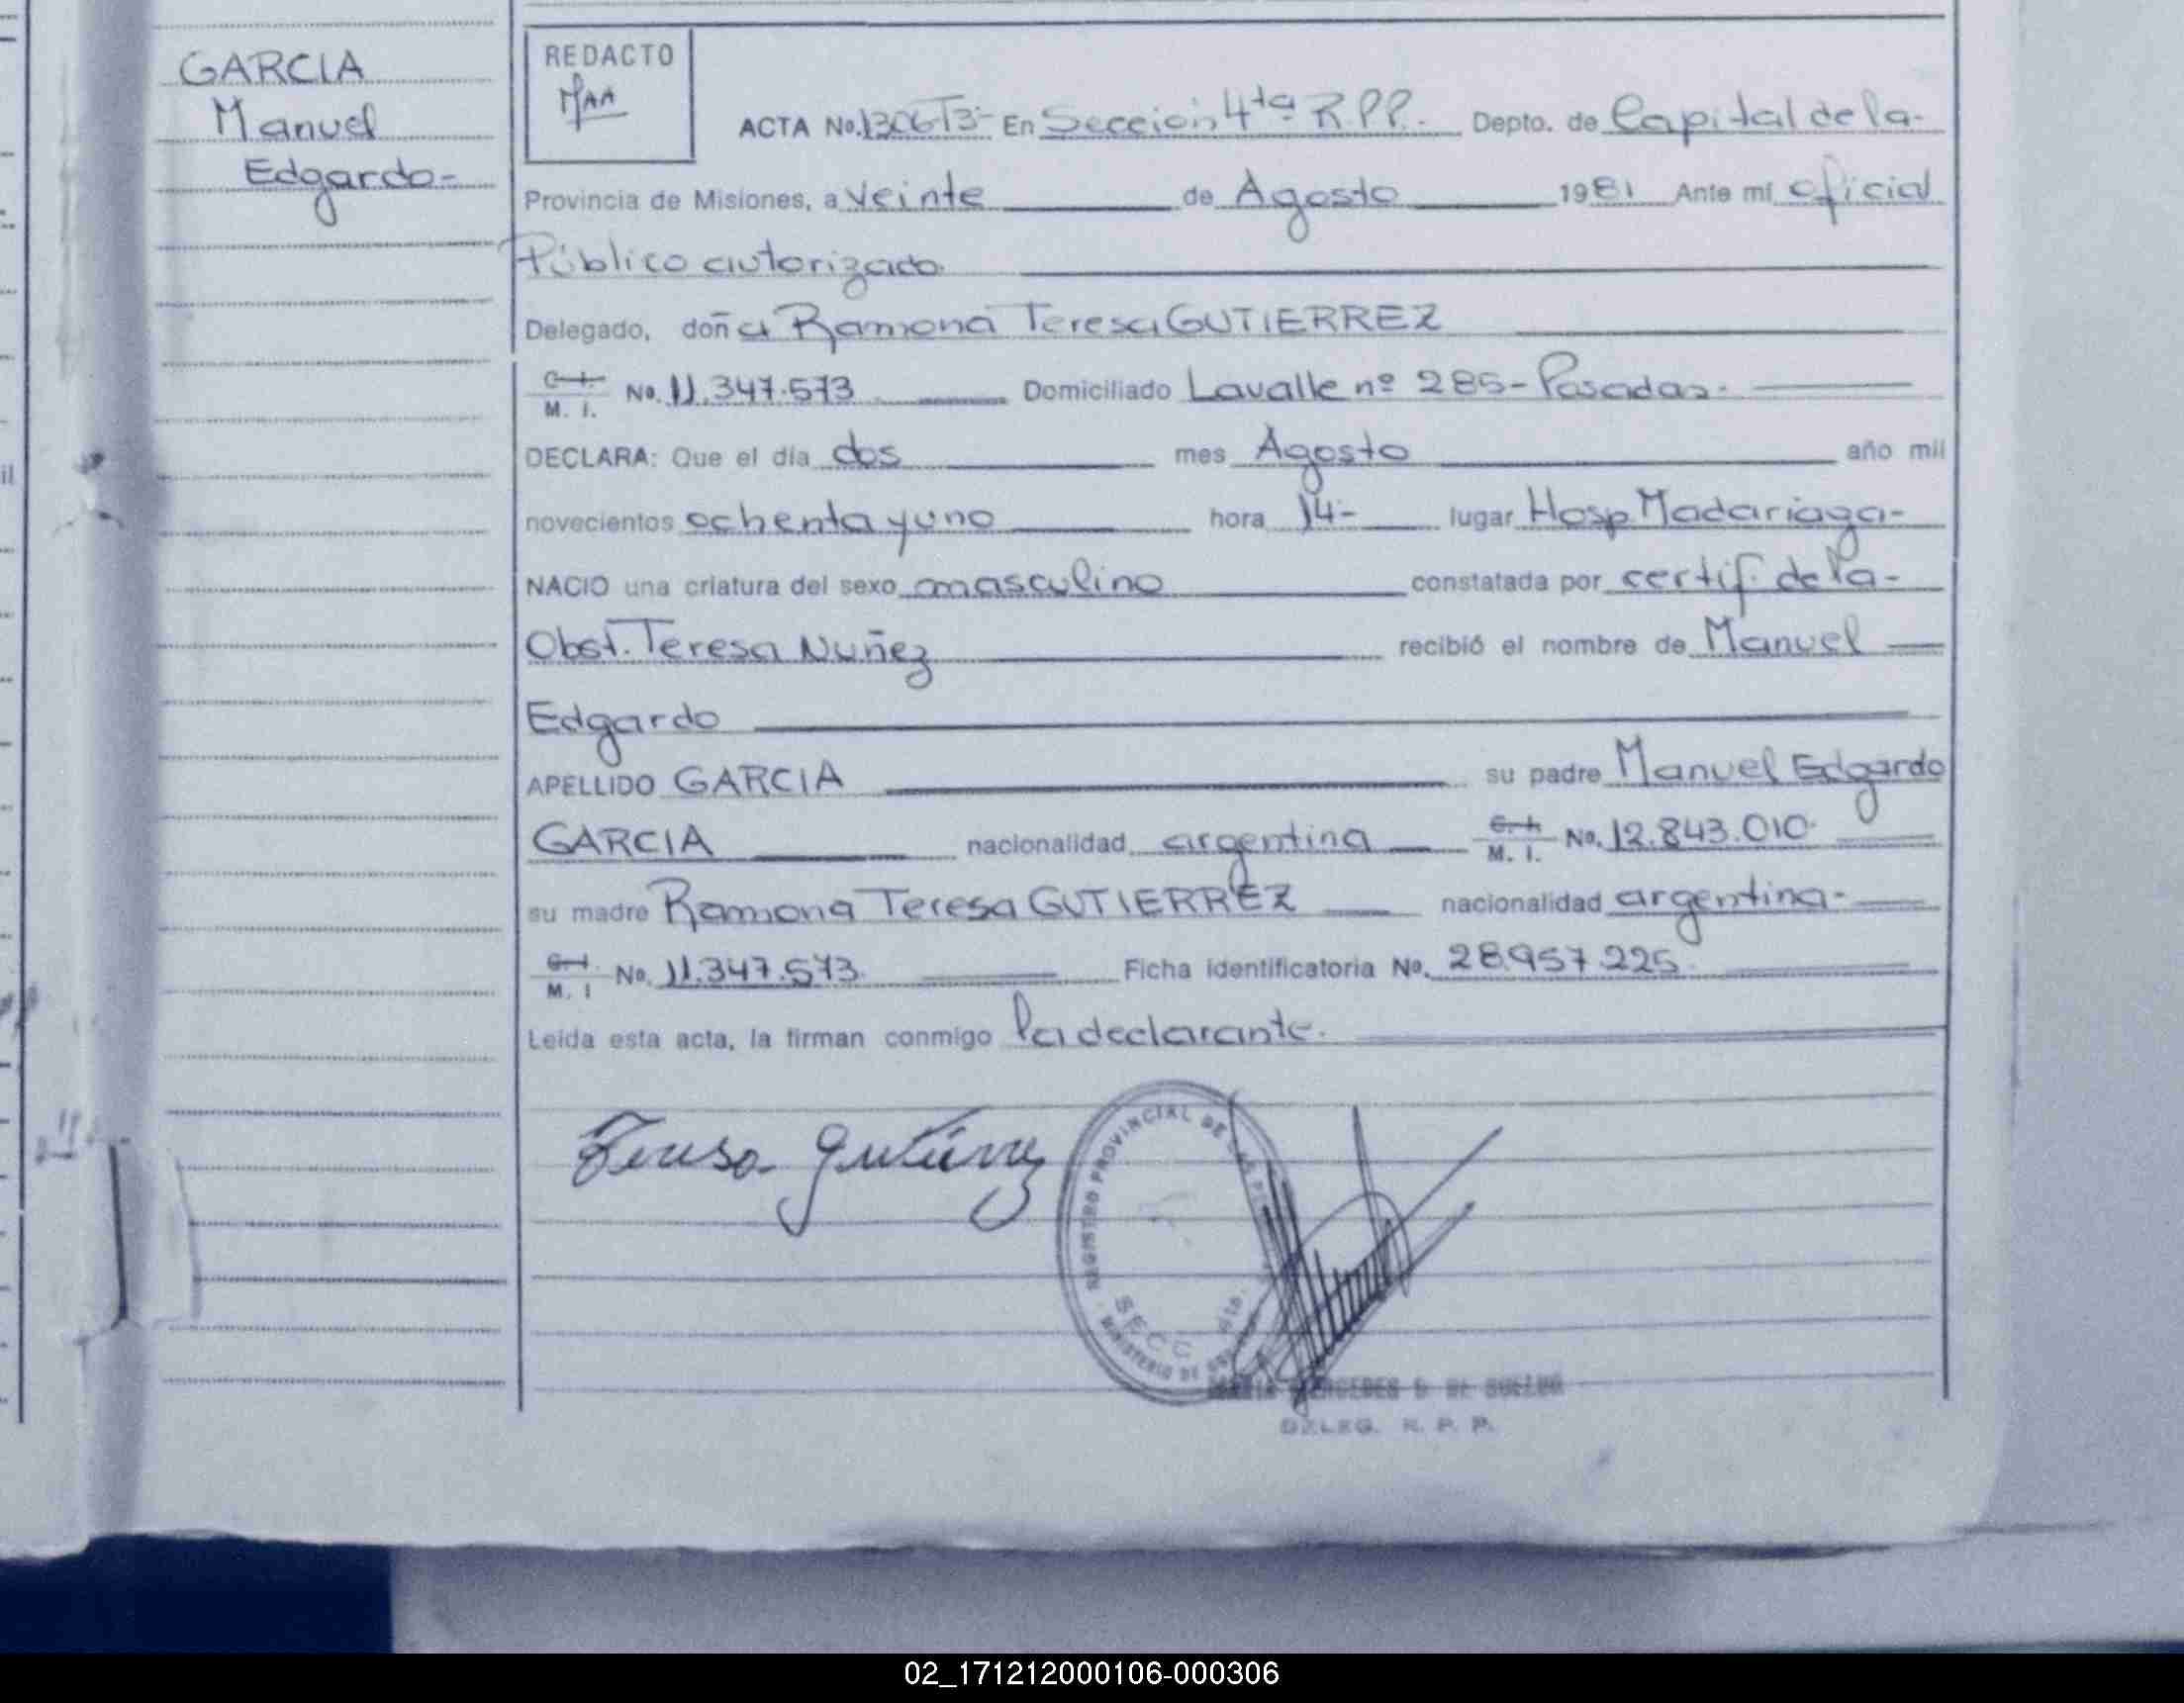 GARCIA
Manuel
Edgardo-
REDACTO
MAA
ACTA No. 1306T3- En Sección 4ta R.P.P. Depto. de Capital de la-
Provincia de Misiones, a veinte de Agosto 1981 Ante mí oficial
Público autorizado
Delegado, doña Ramona Teresa GUTIERREZ
C. I. M. I. No. 11.347.573 Domiciliado Lavalle nº 285-Posadas-
DECLARA: Que el día dos mes Agosto año mil
novecientos ochenta y uno hora 14- lugar Hosp. Madariaga-
NACIO una criatura del sexo masculino constatada por certif. de la-
Obst. Teresa Nuñez recibió el nombre de Manuel
Edgardo
APELLIDO GARCIA su padre Manuel Edgardo
GARCIA nacionalidad argentina C. I. M. I. No. 12.843.010
su madre Ramona Teresa GUTIERREZ nacionalidad argentina-
C. I. M. I No. 11.347.573 Ficha identificatoria No. 28.957.225
Leída esta acta, la firman conmigo la declarante.
Teresa Gutierrez
REGISTRO PROVINCIAL DE
SECC 4ta.
MINISTERIO DE
MERCEDES
DELEG. R. P. P.
02_171212000106-000306